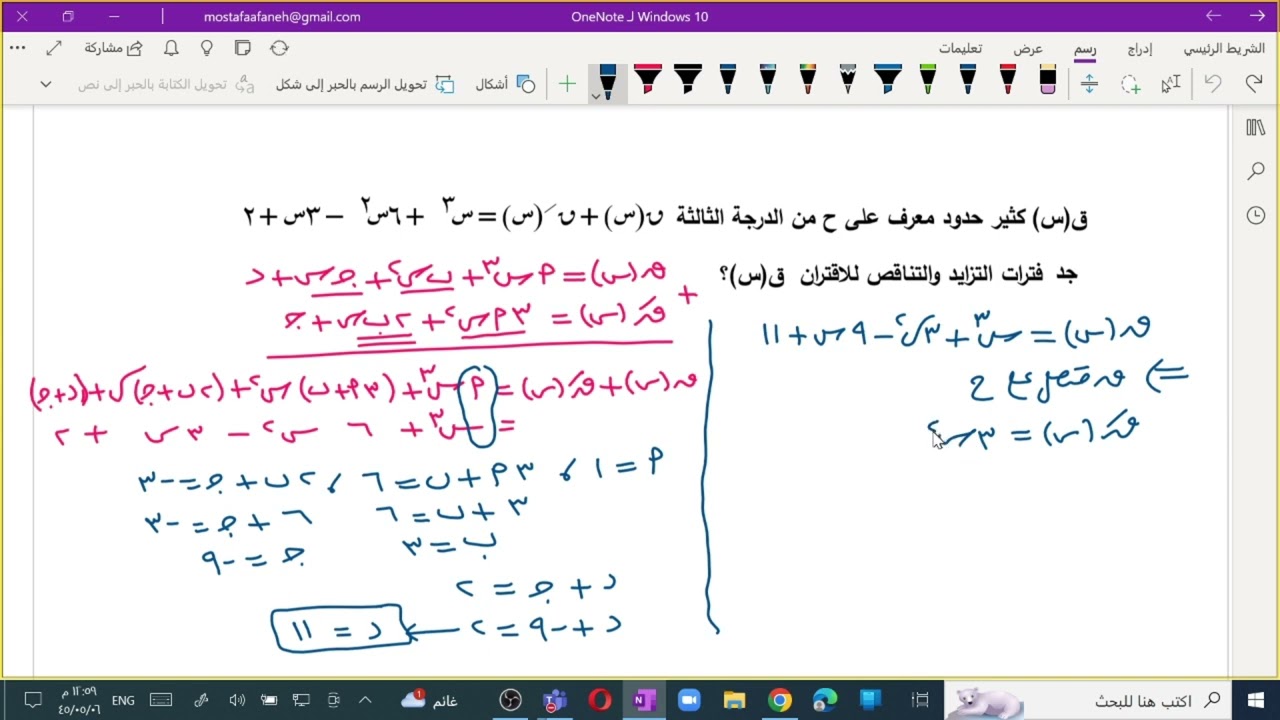 mostafaafaneh@gmail.com
OneNote لـ Windows 10
الشريط الرئيسي إدراج رسم عرض تعليمات
مشاركة
أشكال
تحويل الرسم بالحبر إلى شكل
تحويل الكتابة بالحبر إلى نص
ق(س) كثير حدود معرف على ح من الدرجة الثالثة ق(س) + قَ(س) = س٣ + ٦س٢ − ٣س + ٢
جد فترات التزايد والتناقص للاقتران ق(س)؟
ق(س) = أس٣ + ب س٢ + جـ س + د
+
قَ(س) = ٣أس٢ + ٢ب س + جـ
ق(س) + قَ(س) = أس٣ + (٣أ + ب)س٢ + (٢ب + جـ)س + (د + جـ)
= س٣ + ٦س٢ − ٣س + ٢
أ = ١ ، ٣أ + ب = ٦ ، ٢ب + جـ = −٣
٣ + ب = ٦
٦ + جـ = −٣
ب = ٣
جـ = −٩
د + جـ = ٢
د + −٩ = ٢
د = ١١
ق(س) = س٣ + ٣س٢ − ٩س + ١١
⇐ ق متصل على ح
قَ(س) = ٣س٢
اكتب هنا للبحث
غائم
1
ENG
١٢:٥٩ م
٤٥/٠٥/٠٦